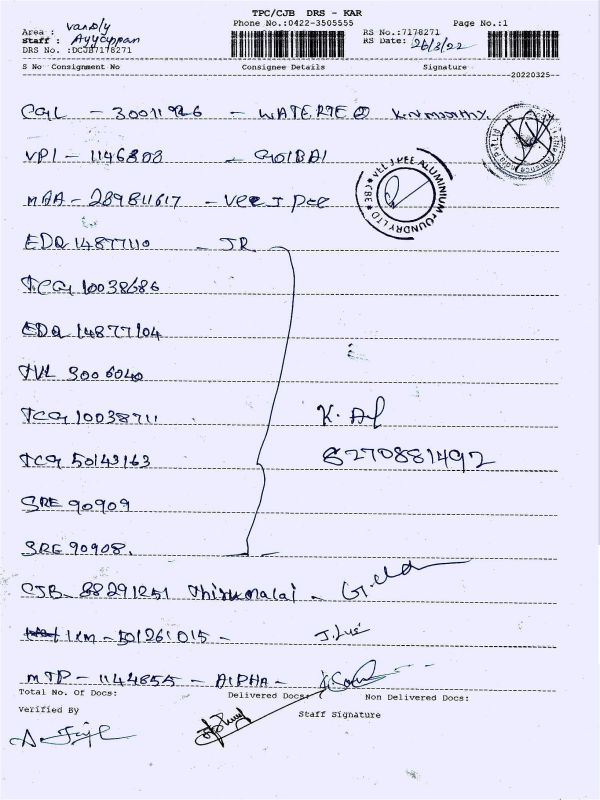 TPC/CJB DRS - KAR
Phone No.:0422-3505555 Page No.:1
Area : vardly
Staff : Ayyappan
DRS No. :DCJB7178271
RS No.:7178271
RS Date: 26/3/22
S No Consignment No Consignee Details Signature
20220325
CGL - 30011926 - WATERTEC K.N moorthy.
VPI - 1146808 - GOIBAI
MAA - 289811617 - Vee J Pee
VEE J PEE ALUMINIUM FOUNDRY LTD ★ CBE ★
EDQ 14877110 - JR
TCG 10038686
EDQ 14877104
TVL 3006040
TCG 10038711 K.
TCG 50143163 8270881492
SRE 90909
SRE 90908.
CJB - 88291251 Thirumalai -
IXM - 501261015 -
MTP - 1144855 - ALPHA -
Total No. Of Docs: Delivered Docs: Non Delivered Docs:
Verified By Staff Signature